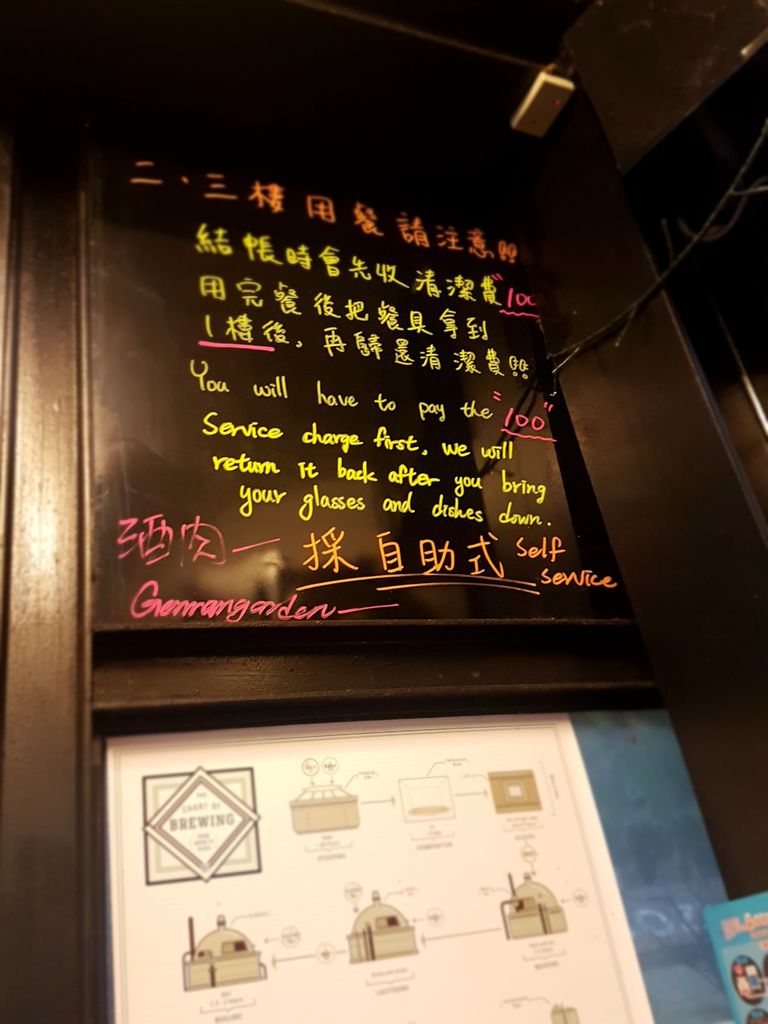 二、三樓用餐請注意!!
結帳時會先收清潔費"100
用完餐後把餐具拿到
1樓後，再歸還清潔費!!
You will have to pay the "100"
Service charge first, we will
return it back after you bring
your glasses and dishes down.
酒肉— 採自助式 Self
service
Germangarden—
THE
CHART OF
BREWING